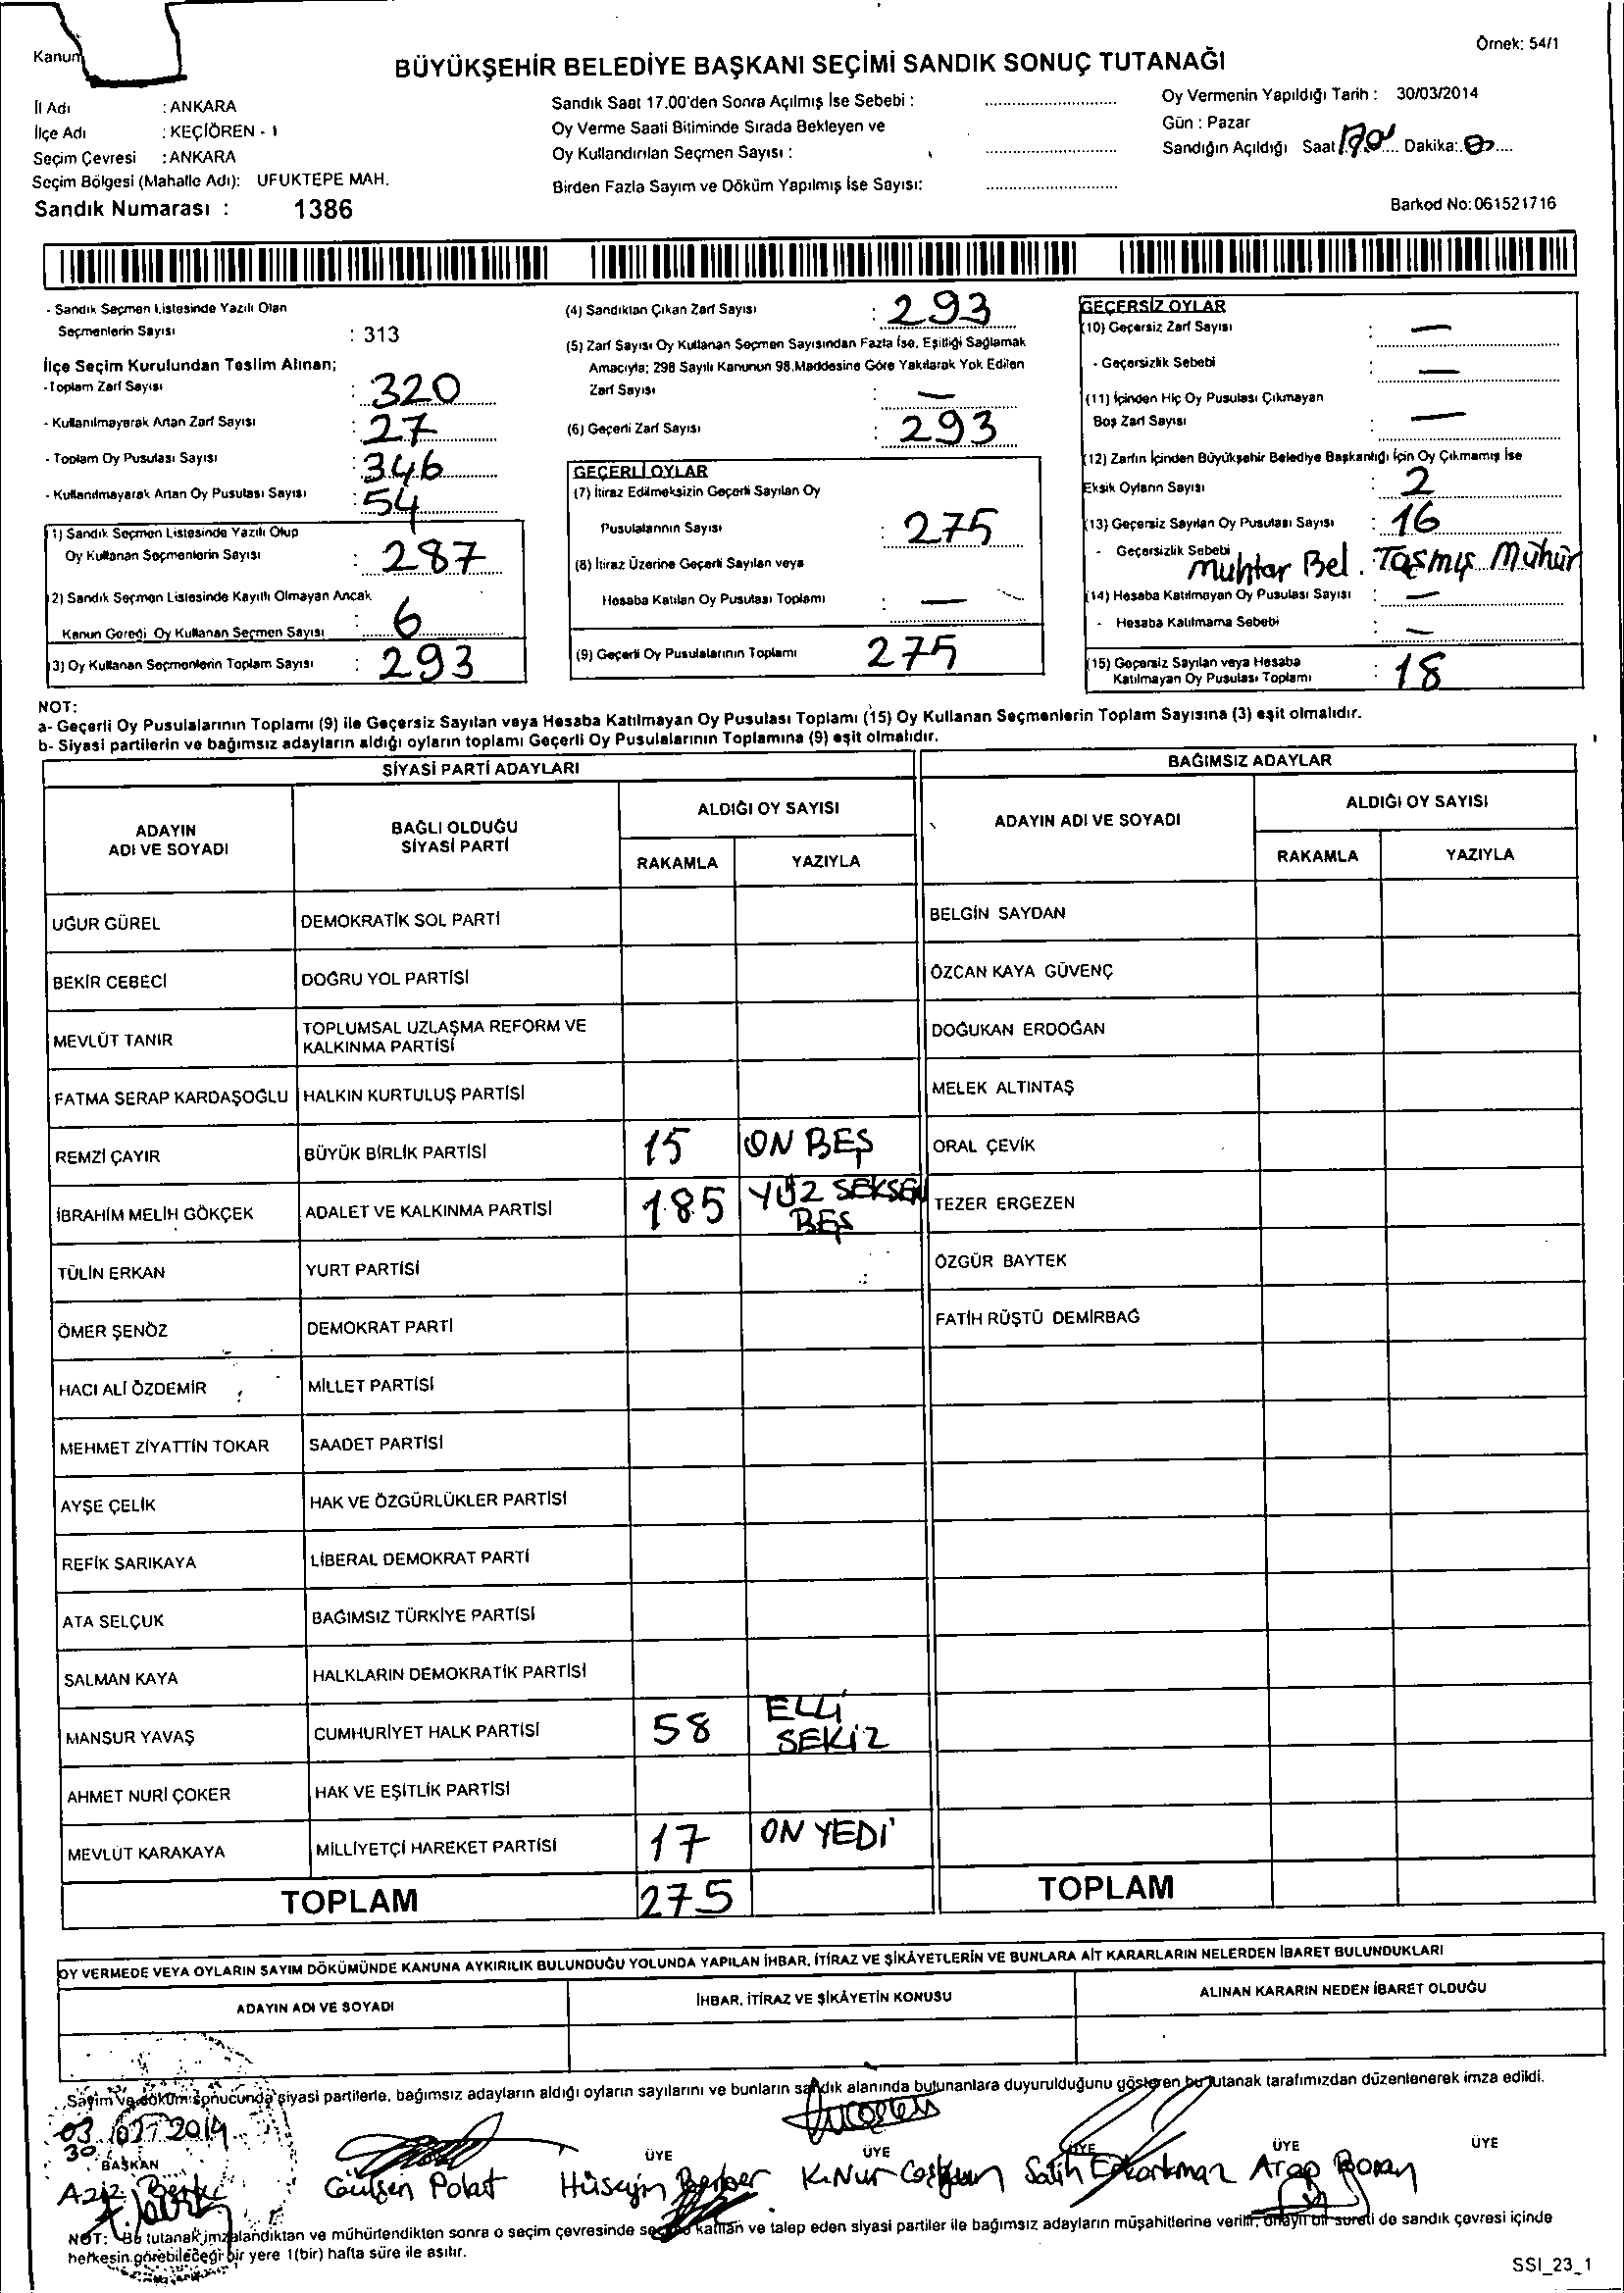 Kanun
Örnek: 54/1
BÜYÜKŞEHİR BELEDİYE BAŞKANI SEÇİMİ SANDIK SONUÇ TUTANAĞI
İl Adı : ANKARA
İlçe Adı : KEÇİÖREN - 1
Seçim Çevresi : ANKARA
Seçim Bölgesi (Mahalle Adı): UFUKTEPE MAH.
Sandık Numarası : 1386
Sandık Saat 17.00'den Sonra Açılmış İse Sebebi :
Oy Verme Saati Bitiminde Sırada Bekleyen ve
Oy Kullandırılan Seçmen Sayısı :
Birden Fazla Sayım ve Döküm Yapılmış İse Sayısı:
Oy Vermenin Yapıldığı Tarih : 30/03/2014
Gün : Pazar
Sandığın Açıldığı Saat Dakika:
Barkod No:061521716
- Sandık Seçmen Listesinde Yazılı Olan
Seçmenlerin Sayısı : 313
İlçe Seçim Kurulundan Teslim Alınan;
- Toplam Zarf Sayısı : 320
- Kullanılmayarak Artan Zarf Sayısı : 27
- Toplam Oy Pusulası Sayısı : 346
- Kullanılmayarak Artan Oy Pusulası Sayısı : 54
1) Sandık Seçmen Listesinde Yazılı Olup
Oy Kullanan Seçmenlerin Sayısı : 287
2) Sandık Seçmen Listesinde Kayıtlı Olmayan Ancak
Kanun Gereği Oy Kullanan Seçmen Sayısı : 6
3) Oy Kullanan Seçmenlerin Toplam Sayısı : 293
(4) Sandıktan Çıkan Zarf Sayısı : 293
(5) Zarf Sayısı Oy Kullanan Seçmen Sayısından Fazla İse, Eşitliği Sağlamak
Amacıyla; 298 Sayılı Kanunun 98.Maddesine Göre Yakılarak Yok Edilen
Zarf Sayısı : —
(6) Geçerli Zarf Sayısı : 293
GEÇERLİ OYLAR
(7) İtiraz Edilmeksizin Geçerli Sayılan Oy
Pusulalarının Sayısı : 275
(8) İtiraz Üzerine Geçerli Sayılan veya
Hesaba Katılan Oy Pusulası Toplamı : —
(9) Geçerli Oy Pusulalarının Toplamı 275
GEÇERSİZ OYLAR
(10) Geçersiz Zarf Sayısı : —
- Geçersizlik Sebebi : —
(11) İçinden Hiç Oy Pusulası Çıkmayan
Boş Zarf Sayısı : —
(12) Zarfın İçinden Büyükşehir Belediye Başkanlığı İçin Oy Çıkmamış İse
Eksik Oyların Sayısı : 2
(13) Geçersiz Sayılan Oy Pusulası Sayısı : 16
- Geçersizlik Sebebi Muhtar Bel. Taşmış Mühür
(14) Hesaba Katılmayan Oy Pusulası Sayısı : —
- Hesaba Katılmama Sebebi : —
(15) Geçersiz Sayılan veya Hesaba
Katılmayan Oy Pusulası Toplamı : 18
NOT:
a- Geçerli Oy Pusulalarının Toplamı (9) ile Geçersiz Sayılan veya Hesaba Katılmayan Oy Pusulası Toplamı (15) Oy Kullanan Seçmenlerin Toplam Sayısına (3) eşit olmalıdır.
b- Siyasi partilerin ve bağımsız adayların aldığı oyların toplamı Geçerli Oy Pusulalarının Toplamına (9) eşit olmalıdır.
SİYASİ PARTİ ADAYLARI BAĞIMSIZ ADAYLAR
ADAYIN ADI VE SOYADI BAĞLI OLDUĞU SİYASİ PARTİ ALDIĞI OY SAYISI ADAYIN ADI VE SOYADI ALDIĞI OY SAYISI
RAKAMLA YAZIYLA RAKAMLA YAZIYLA
UĞUR GÜREL DEMOKRATİK SOL PARTİ BELGİN SAYDAN
BEKİR CEBECİ DOĞRU YOL PARTİSİ ÖZCAN KAYA GÜVENÇ
MEVLÜT TANIR TOPLUMSAL UZLAŞMA REFORM VE KALKINMA PARTİSİ DOĞUKAN ERDOĞAN
FATMA SERAP KARDAŞOĞLU HALKIN KURTULUŞ PARTİSİ MELEK ALTINTAŞ
REMZİ ÇAYIR BÜYÜK BİRLİK PARTİSİ 15 ON BEŞ ORAL ÇEVİK
İBRAHİM MELİH GÖKÇEK ADALET VE KALKINMA PARTİSİ 185 YÜZ SEKSEN BEŞ TEZER ERGEZEN
TÜLİN ERKAN YURT PARTİSİ ÖZGÜR BAYTEK
ÖMER ŞENÖZ DEMOKRAT PARTİ FATİH RÜŞTÜ DEMİRBAĞ
HACI ALİ ÖZDEMİR MİLLET PARTİSİ
MEHMET ZİYATTİN TOKAR SAADET PARTİSİ
AYŞE ÇELİK HAK VE ÖZGÜRLÜKLER PARTİSİ
REFİK SARIKAYA LİBERAL DEMOKRAT PARTİ
ATA SELÇUK BAĞIMSIZ TÜRKİYE PARTİSİ
SALMAN KAYA HALKLARIN DEMOKRATİK PARTİSİ
MANSUR YAVAŞ CUMHURİYET HALK PARTİSİ 58 ELLİ SEKİZ
AHMET NURİ ÇOKER HAK VE EŞİTLİK PARTİSİ
MEVLÜT KARAKAYA MİLLİYETÇİ HAREKET PARTİSİ 17 ON YEDİ
TOPLAM 275 TOPLAM
OY VERMEDE VEYA OYLARIN SAYIM DÖKÜMÜNDE KANUNA AYKIRILIK BULUNDUĞU YOLUNDA YAPILAN İHBAR, İTİRAZ VE ŞİKÂYETLERİN VE BUNLARA AİT KARARLARIN NELERDEN İBARET BULUNDUKLARI
ADAYIN ADI VE SOYADI İHBAR, İTİRAZ VE ŞİKÂYETİN KONUSU ALINAN KARARIN NEDEN İBARET OLDUĞU
Sayım ve döküm sonucunda siyasi partilerle, bağımsız adayların aldığı oyların sayılarını ve bunların sandık alanında bulunanlara duyurulduğunu gösteren bu tutanak tarafımızdan düzenlenerek imza edildi.
BAŞKAN ÜYE ÜYE ÜYE ÜYE ÜYE
Aziz Gülşen Polat Hüseyin Berber K.Nur Coşkun Salih Arap Boran
NOT: Bu tutanak imzalandıktan ve mühürlendikten sonra o seçim çevresinde seçime katılan ve talep eden siyasi partiler ile bağımsız adayların müşahitlerine verilir, onaylı bir sureti de sandık çevresi içinde
herkesin görebileceği bir yere 1(bir) hafta süre ile asılır.
SSI_23_1